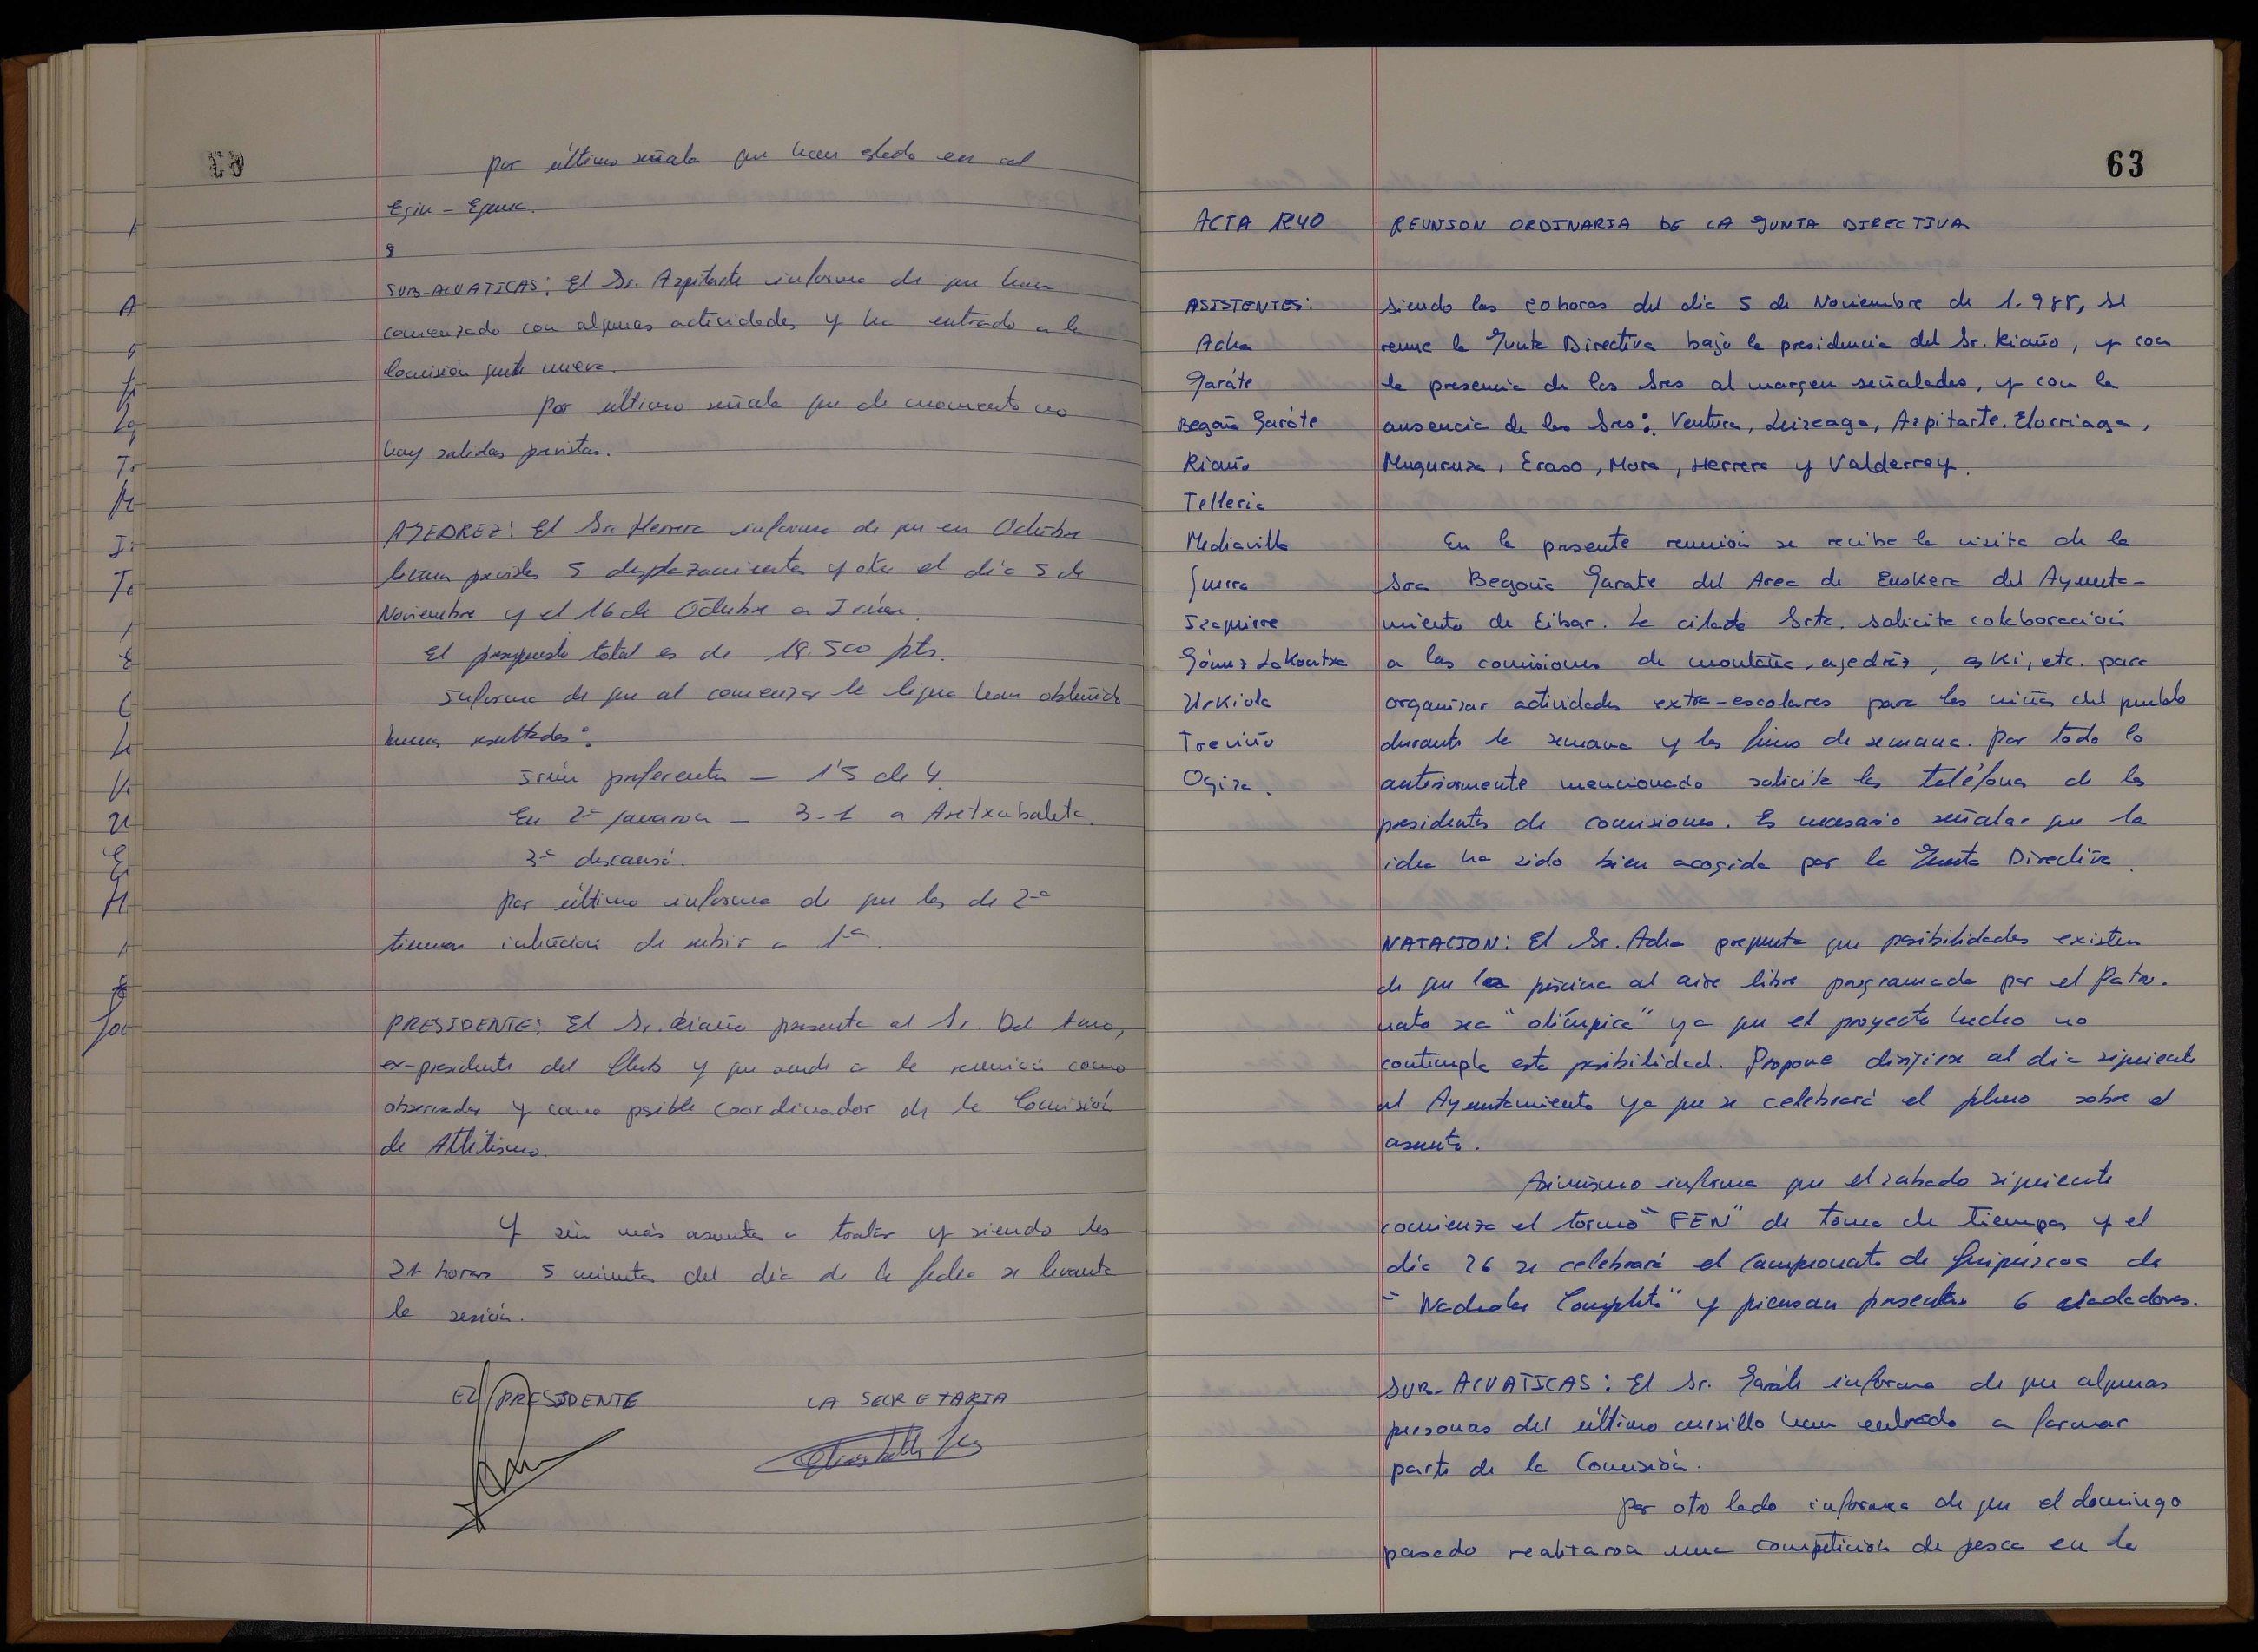 por último señala que han estado en el
Egin - Eguna.
SUB-ACUATICAS: El Sr. Azpitarte informa de que han
comenzado con algunas actividades y ha entrado a la
Comisión gente nueva.
Por último señala que de momento no
hay salidas previstas.
AJEDREZ: El Sr. Herrera informa de que en Octubre
tienen previstos 5 desplazamientos y otro el día 5 de
Noviembre y el 16 de Octubre a Irún.
El presupuesto total es de 18.500 pts.
Informa de que al comenzar la liga han obtenido
buenos resultados:
Irún preferente - 1'5 de 4
En 2ª ganaron - 3-1 a Aretxabaleta.
3ª descansó.
Por último informa de que los de 2ª
tienen intención de subir a 1ª.
PRESIDENTE: El Sr. Riaño presenta al Sr. Del Amo,
ex-presidente del Club y que acude a la reunión como
observador y como posible coordinador de la Comisión
de Atletismo.
Y sin más asuntos a tratar y siendo las
21 horas 5 minutos del día de la fecha se levanta
la sesión.
EL PRESIDENTE LA SECRETARIA
63
ACTA 1240 REUNION ORDINARIA DE LA JUNTA DIRECTIVA
ASISTENTES: Siendo las 20 horas del día 5 de Noviembre de 1.988, se
Acha reune la Junta Directiva bajo la presidencia del Sr. Riaño, y con
Garáte la presencia de los Sres al margen señalados, y con la
Begoña Garáte ausencia de los Sres: Ventura, Leizeaga, Azpitarte, Elorriaga,
Riaño Muguruza, Eraso, Mora, Herrera y Valderrey.
Telleria
Mediavilla En la presente reunión se recibe la visita de la
Guerra Sra Begoña Garate del Area de Euskera del Ayunta-
Izaguirre miento de Eibar. La citada Srta. solicita colaboración
Gómez Lakontxa a las comisiones de montaña, ajedréz, eski, etc. para
Urkiola organizar actividades extra-escolares para los niños del pueblo
Treviño durante la semana y los fines de semana. Por todo lo
Ogiza. anteriormente mencionado solicita los teléfonos de los
presidentes de comisiones. Es necesario señalar que la
idea ha sido bien acogida por la Junta Directiva.
NATACION: El Sr. Acha pregunta que posibilidades existen
de que la piscina al aire libre programada por el Patro-
nato sea "olímpica" ya que el proyecto hecho no
contempla esta posibilidad. Propone dirijirse al día siguiente
al Ayuntamiento ya que se celebrará el pleno sobre el
asunto.
Asimismo informa que el sabado siguiente
comienza el torneo "FEN" de toma de tiempos y el
día 26 se celebrará el Campeonato de Guipúzcoa de
"Nadador Completo" y piensan presentar 6 nadadores.
SUB-ACUATICAS: El Sr. Garáte informa de que algunas
personas del último cursillo han entrado a formar
parte de la Comisión.
Por otro lado informa de que el domingo
pasado realizaron una competición de pesca en la